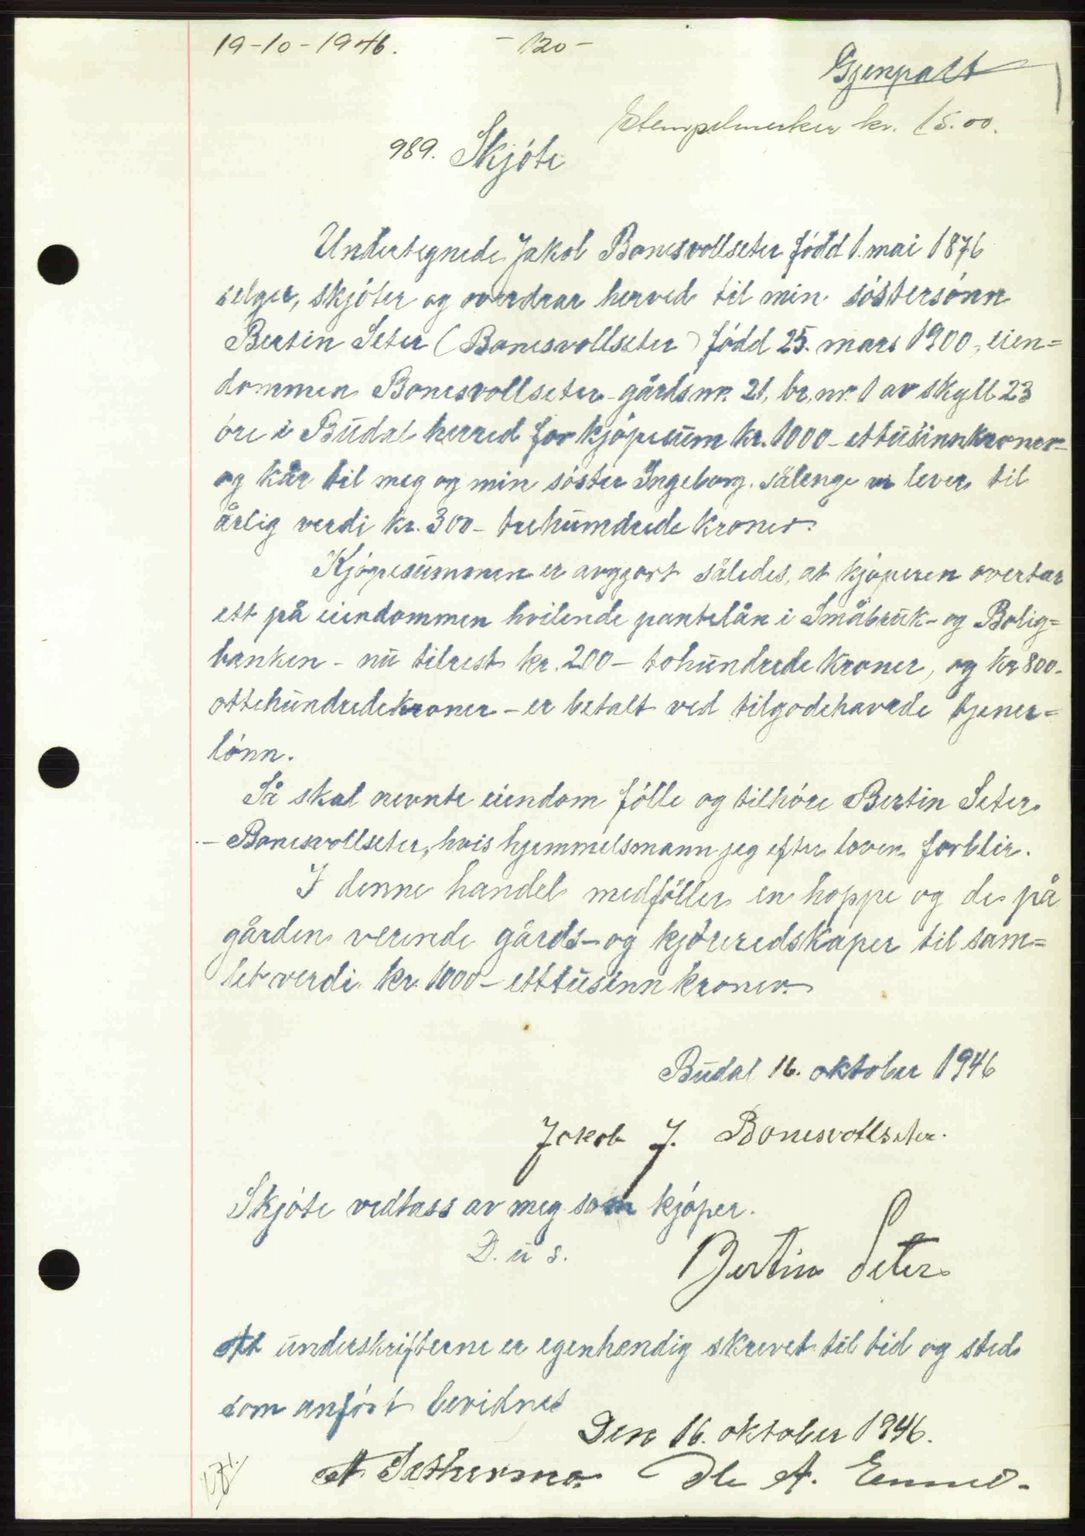 19-10-1946. -120-
Gjenpart
Stempelmerker kr. 15.00.
989. Skjöte
Undertegnede Jakob Bonesvollseter född 1. mai 1876
selger, skjöter og overdrar herved til min söstersönn
Bertin Seter (Bonesvollseter) född 25. mars 1900, eien=
dommen Bonesvollseter gårdsnr. 21, br.nr. 1 av skyll 23
öre i Budal herred for kjöpesum kr. 1000 - ettusinnkroner -
og kår til meg og min söster Ingeborg. sålenge vi lever til
årlig verdi kr. 300 - trehundrede kroner.
Kjöpesummen er avgjort således, at kjöperen overtar
ett på eiendommen hvilende pantelån i Småbruk- og Bolig=
banken - nu tilrest kr. 200 - tohundrede kroner, og kr. 800 -
ottehundredekroner - er betalt ved tilgodehavende tjener=
lönn.
Så skal nevnte eiendom fölle og tilhöre Bertin Seter
- Bonesvollseter, hvis hjemmelsmann jeg efter loven forblir.
I denne handel medföller en hoppe og de på
gården verende gårds- og kjöreredskaper til sam=
let verdi kr. 1000 - ettusinn kroner.
Budal 16. oktober 1946
Jakob J. Bonesvollseter.
Skjöte vedtass av meg som kjöper.
D. u s.
Bertin Seter
At underskrifterne er egenhendig skrevet til tid og sted
som anfört bevidnes
Den 16. oktober 1946.